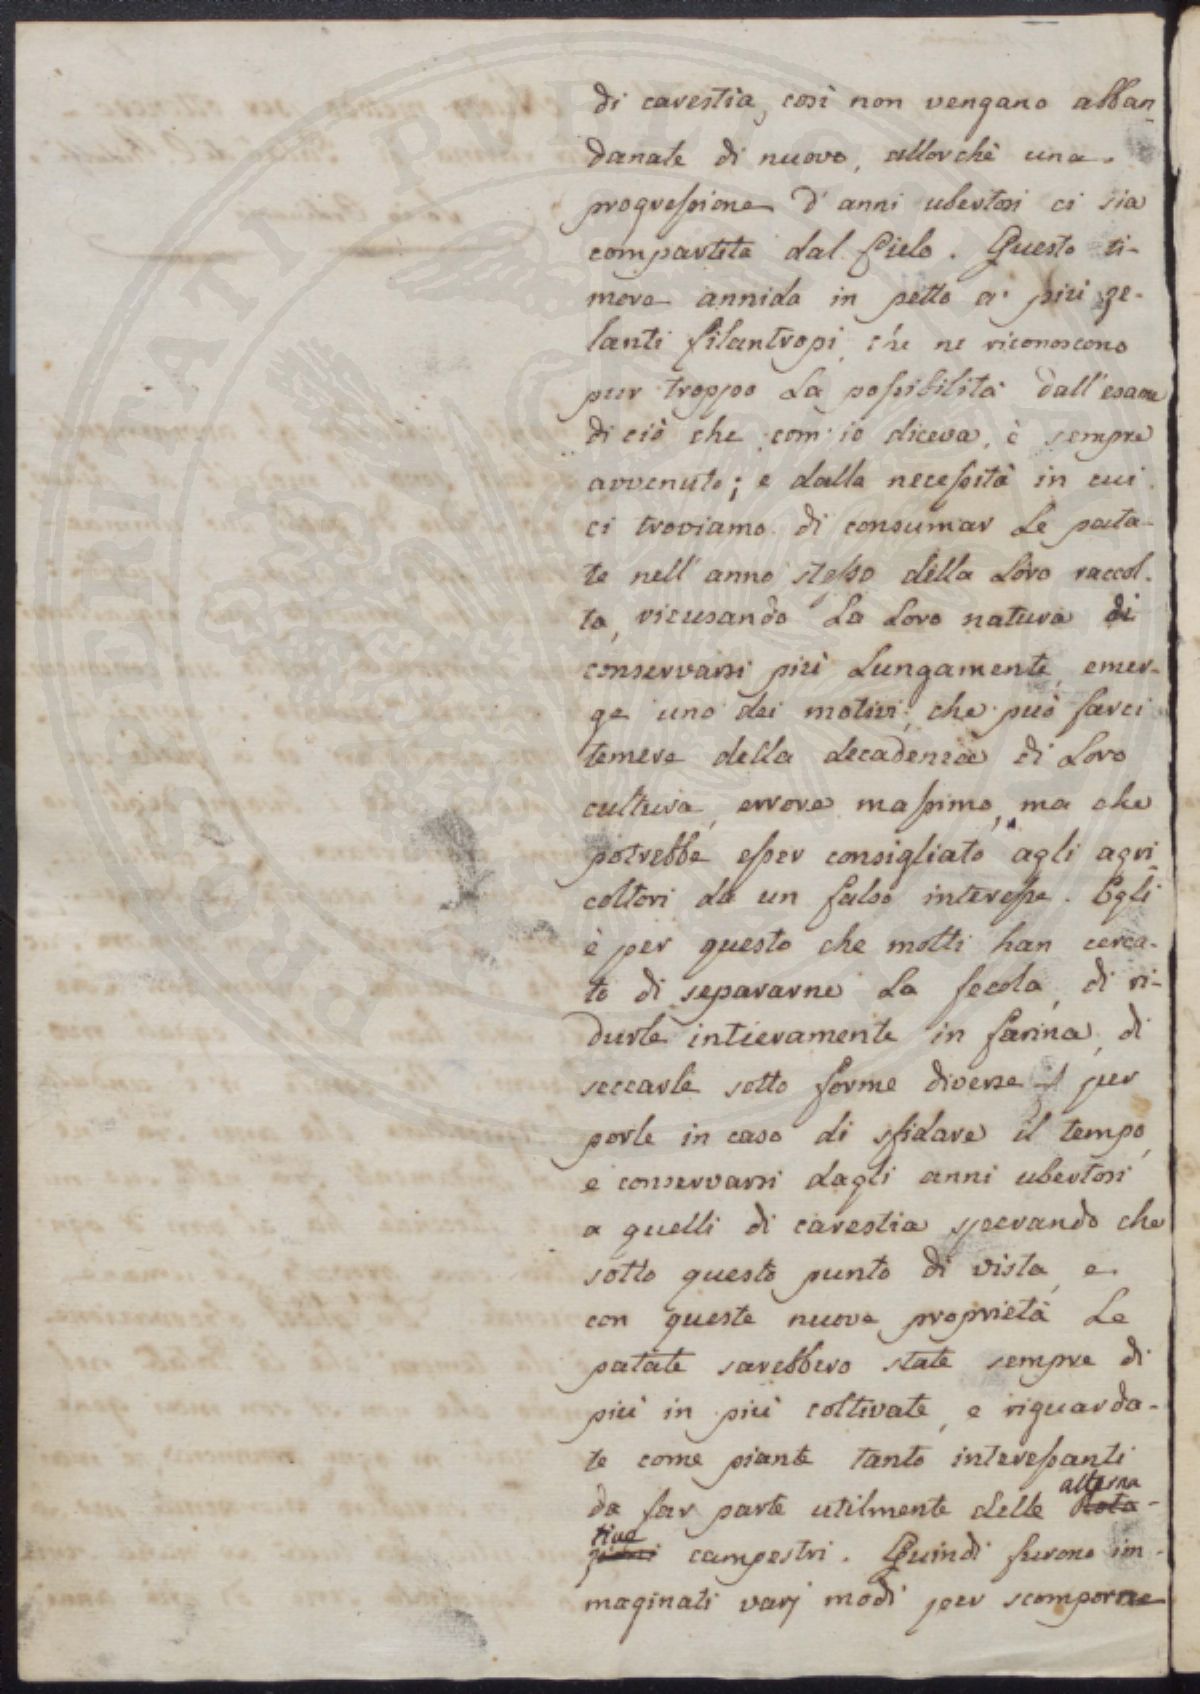 di carestia, così non vengano abban
donate di nuovo, allorchè una
progressione d'anni ubertosi ci sia
compartita dal Cielo. Questo ti-
more annida in petto a' più ze-
lanti filantropi, che ne riconoscono
pur troppo la possibilità dall'esame
di ciò che, com'io diceva, è sempre
avvenuto; e dalla necessità in cui
ci troviamo di consumar le pata-
te nell'anno stesso della loro raccol-
ta, ricusando la loro natura di
conservarsi più lungamente, emer-
ge uno dei motivi, che può farci
temere della decadenza di loro
cultura, errore massimo, ma che
potrebbe esser consigliato agli agri-
coltori da un falso interesse. Egli
è per questo che molti han cerca-
to di separarne la fecola, di ri-
durle intieramente in farina, di
seccarle sotto forme diverse per
porle in caso di sfidare il tempo,
e conservarsi dagli anni ubertosi
a quelli di carestia sperando che
sotto questo punto di vista, e
con queste nuove proprietà le
patate sarebbero state sempre di
più in più coltivate, e riguarda-
te come piante tanto interessanti
alterna
da far parte utilmente delle Rota-
tive
zioni campestri. Quindi furono im-
maginati varj modi per scomporne